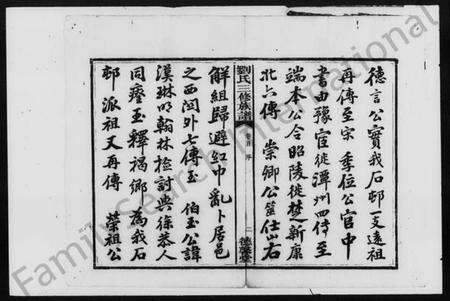 德言公實我石邨一支遠祖
再傳至宋 季位公官中
書由豫宦徙潭州四傳至
端本公令昭陵徙楚新康
北六傳 崇卿公筮仕山右
劉氏三修族譜
卷首 序
二
解組歸避紅巾亂卜居邑
之西閃外七傳至 伯玉公諱
漢琳明翰林檢討與徐恭人
同瘞玉釋褐鄉 為我石
邨派祖又再傳 榮祖公
FamilySearch International